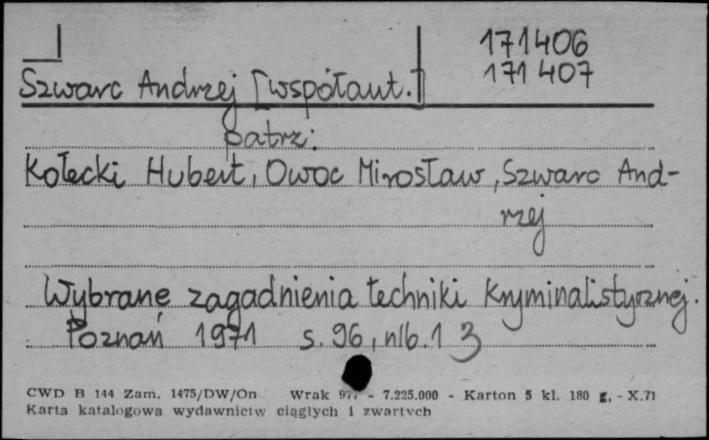 171406
171407
Szwarc Andrzej [współaut.]
patrz:
Kołecki Hubert, Owoc Mirosław, Szwarc And-
rzej
Wybrane zagadnienia techniki kryminalistycznej.
Poznań 1971 s. 96, nlb. 1 3
CWD B 144 Zam. 1475/DW/On Wrak - 7.225.000 - Karton 5 kl. 180 g, - X.71
Karta katalogowa wydawnictw ciągłych i zwartych